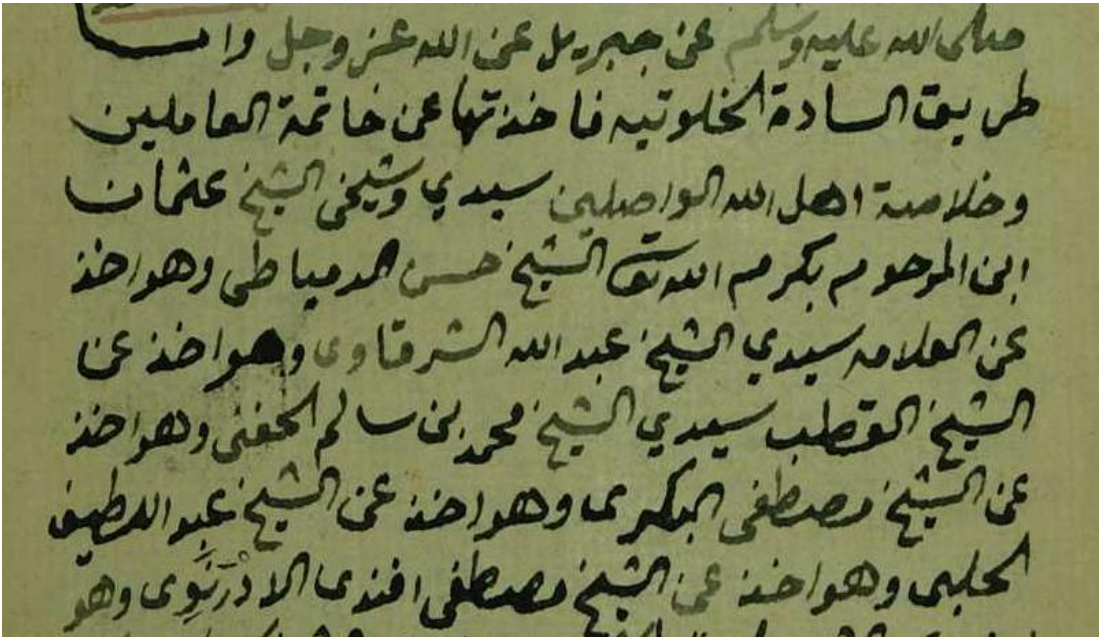 صلى الله عليه وسلم عن جبريل عن الله عز وجل واما
طريق السادة الخلوتيه فاخذتها عن خاتمة العاملين
وخلاصة اهل الله الواصلين سيدي وشيخي الشيخ عثمان
ابن المرحوم بكرم الله تعالى الشيخ حسن الدمياطى وهو اخذ
عن العلامه سيدي الشيخ عبد الله الشرقاوى وهو اخذ عن
الشيخ القطب سيدي الشيخ محمد بن سالم الحفنى وهو اخذ
عن الشيخ مصطفى البكرى وهو اخذ عن الشيخ عبد اللطيف
الحلبى وهو اخذ عن الشيخ مصطفى افندى الادْرَنَوِى وهو